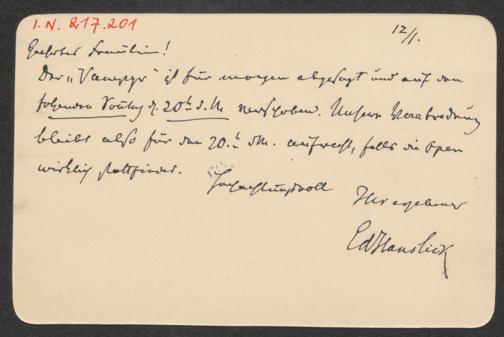 I.N. 217.201
12/1.
Geehrtes Fräulein!
Der „Vampyr" ist für morgen abgesagt und auf den
folgenden Sonntag d. 20t. d. M. verschoben. Unsere Verabredung
bleibt also für den 20t. d. M. aufrecht, falls die Oper
wirklich stattfindet.
Hochachtungsvoll
Ihr ergebener
Ed Hanslick